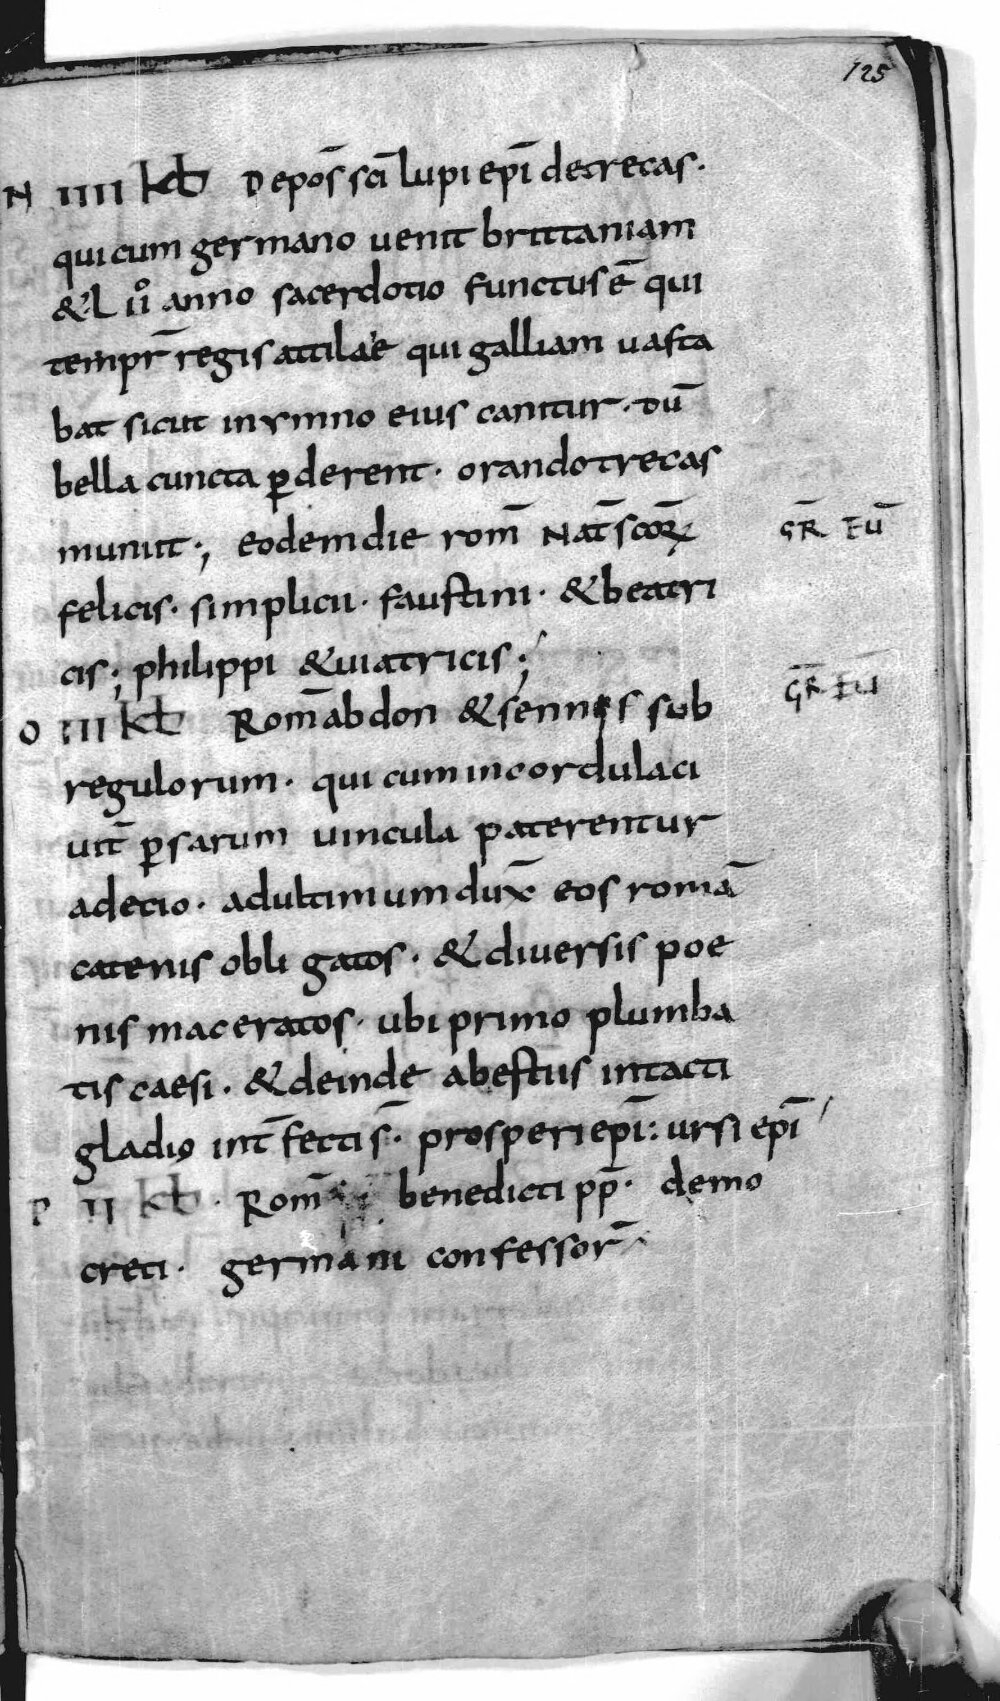 125
N IIII kƀ Depos̄ sc̄i lupi ep̄i detrecas.
qui cum germano uenit brittaniam
&. L IIº anno sacerdotio functus ē qui
tempr̄ regis attilae qui galliam uasta
bat sicut inymno eius canitur. dū
bella cuncta ꝑderent. orando trecas
muniit; eodem die rom̄ Nat̄ scōꝝ GR̄ EŪ
felicis. simplicii. faustini. & beatri
cis; philippi & uiatricis;
O III kƀ Rom̄ abdon & sennes sub GR̄ EŪ
regulorum. qui cum incordula ci
uit̄ ꝑsarum uincula paterentur
adecio. adultimum dux̄ eos romā
catenis obligatos. & diuersis poe
nis maceratos. ubi primo plumba
tis caesi. & deinde abestiis intacti
gladio int̄fecti s̄. prosperi ep̄i: ursi ep̄i
P II kƀ. Rom̄ benedicti pp̄. demo
creti. germani confessor̄